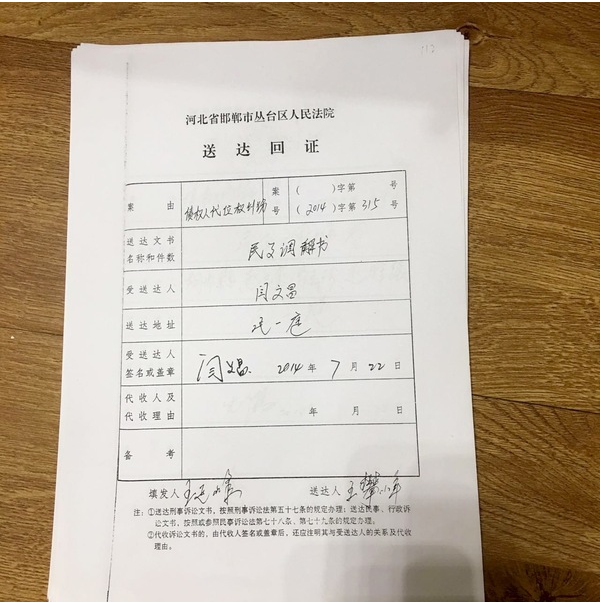 113
河北省邯郸市丛台区人民法院
送达回证
案由 债权人代位权纠纷 案号 ( )字第 号
(2014)字第315号
送达文书名称和件数 民事调解书
受送达人 闫文昌
送达地址 民一庭
受送达人签名或盖章 闫文昌 2014年7月22日
代收人及代收理由 年 月 日
备考
填发人 王 送达人 王
注:①送达刑事诉讼文书,按照刑事诉讼法第五十七条的规定办理;送达民事、行政诉
讼文书,按照或参照民事诉讼法第七十八条、第七十九条的规定办理。
②代收诉讼文书的,由代收人签名或盖章后,还应注明其与受送达人的关系及代收
理由。